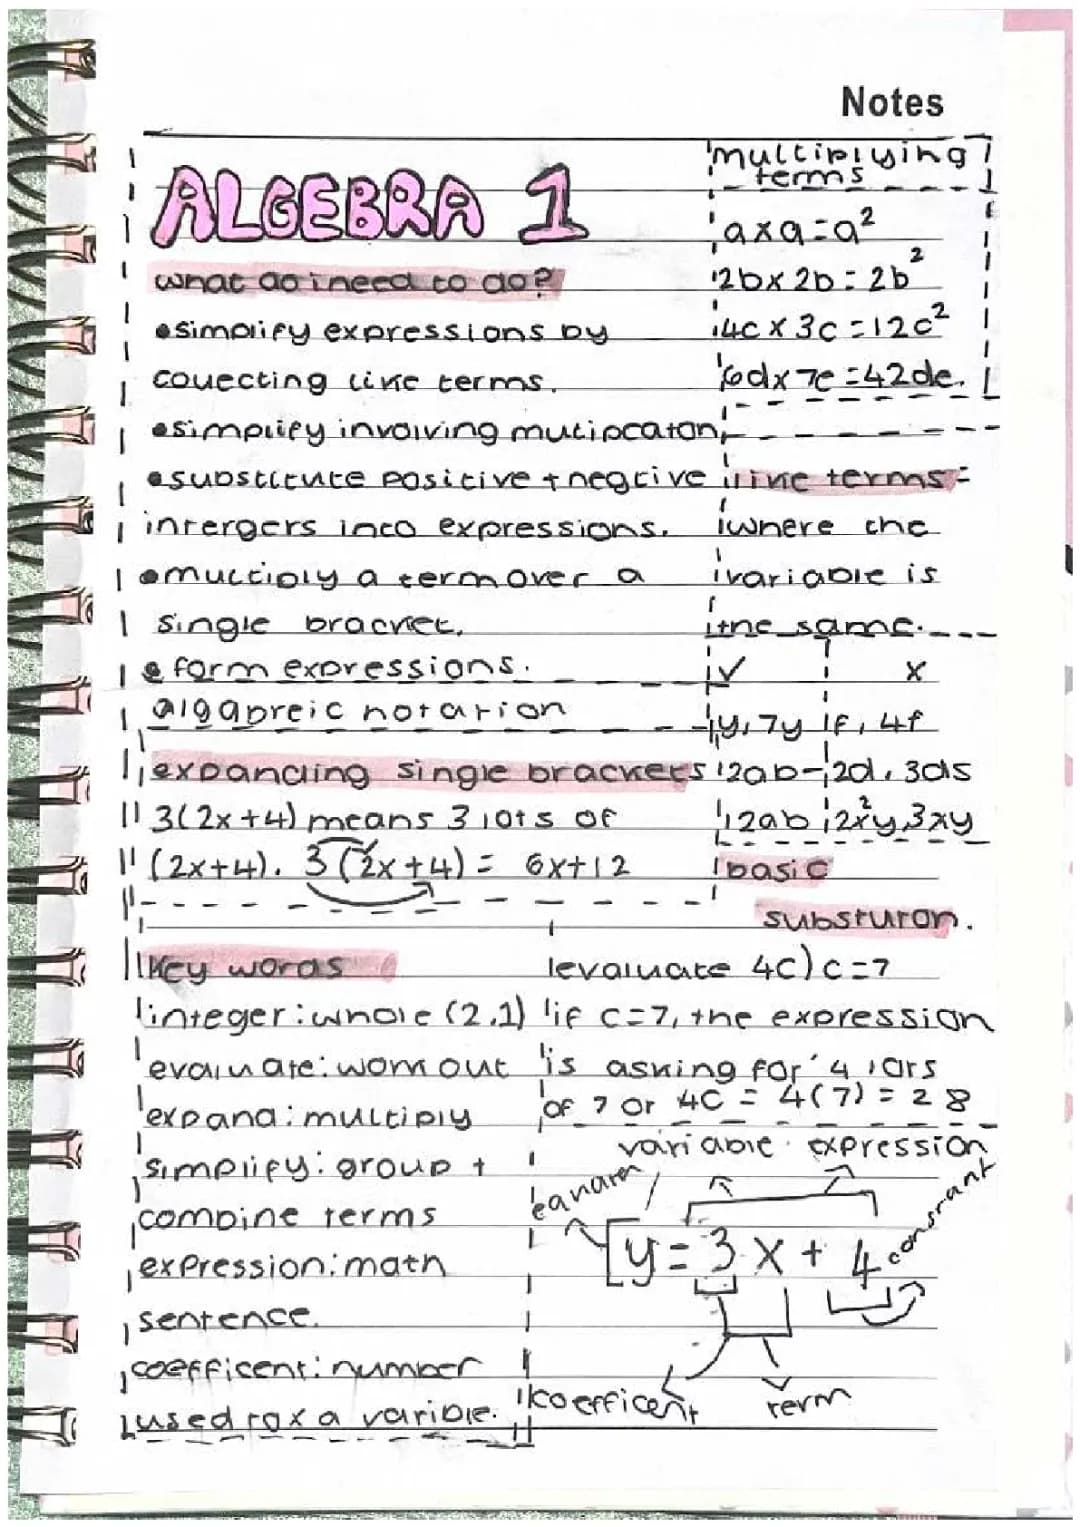 Notes
ALGEBRA 1
what do i need to do?
•simplify expressions by
collecting like terms.
•simplify involving mutipcaton
•substitute positive + negtive
intergers into expressions.
•multiply a term over a
single bracket.
•form expressions.
algabreic notation
multiplying
terms
axa=a²
2bx2b=2b²
4cx3c=12c²
6dx7e=42de.
like terms=
where the
variable is
the same.
✓ x
y, 7y f, 4f
2ab- 2d, 3ds
12ab 2x²y 3xy
expanding single brackets
3(2x+4) means 3 lots of
(2x+4). 3(2x+4) = 6x+12
basic
substuron.
evaluate 4c) c=7
if c=7, the expression
is asking for 4 lots
of 7 or 4c = 4(7) = 28
key words
integer: whole (2,1)
evaluate: work out
expand: multiply
simplify: group +
combine terms
expression: math
sentence.
coefficent: number
used for a varible.
variable expression
y = 3x + 4 constant
koefficent term